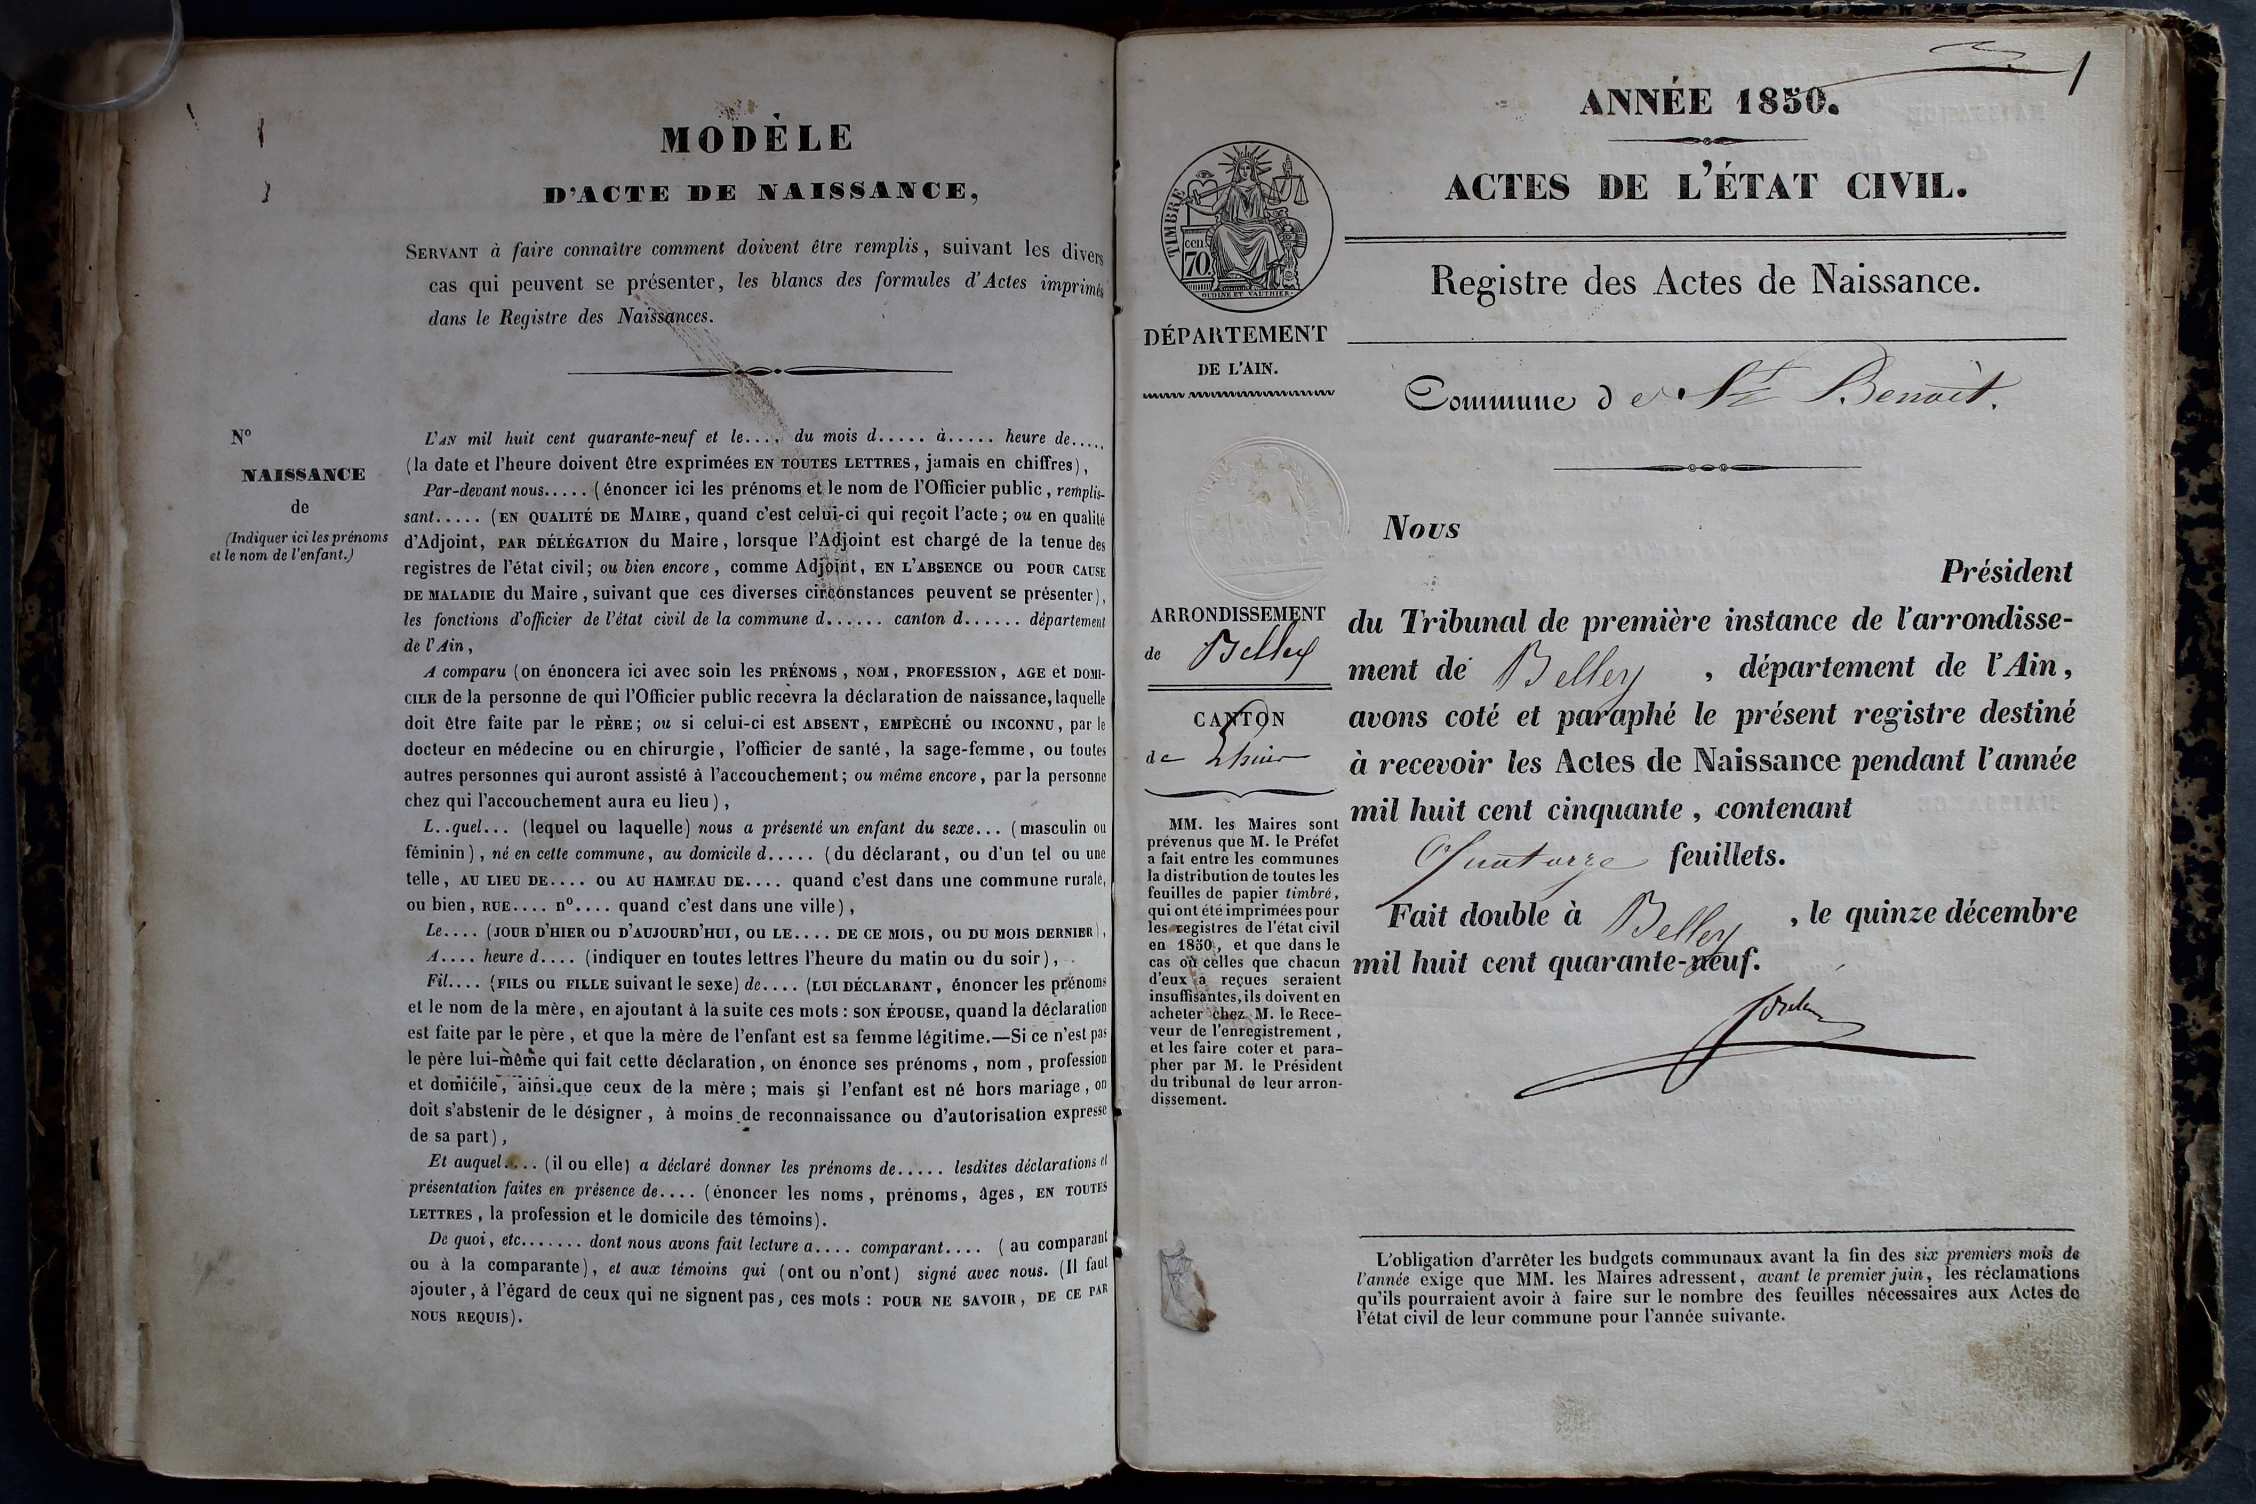 MODÈLE
D'ACTE DE NAISSANCE,
SERVANT à faire connaître comment doivent être remplis, suivant les divers
cas qui peuvent se présenter, les blancs des formules d'Actes imprimés
dans le Registre des Naissances.
N°
NAISSANCE
de
(Indiquer ici les prénoms
et le nom de l'enfant.)
L'AN mil huit cent quarante-neuf et le.... du mois d..... à..... heure de.....
(la date et l'heure doivent être exprimées EN TOUTES LETTRES, jamais en chiffres),
Par-devant nous..... (énoncer ici les prénoms et le nom de l'Officier public, remplis-
sant..... (EN QUALITÉ DE MAIRE, quand c'est celui-ci qui reçoit l'acte; ou en qualité
d'Adjoint, PAR DÉLÉGATION du Maire, lorsque l'Adjoint est chargé de la tenue des
registres de l'état civil; ou bien encore, comme Adjoint, EN L'ABSENCE OU POUR CAUSE
DE MALADIE du Maire, suivant que ces diverses circonstances peuvent se présenter),
les fonctions d'officier de l'état civil de la commune d...... canton d...... département
de l'Ain,
A comparu (on énoncera ici avec soin les PRÉNOMS, NOM, PROFESSION, AGE et DOMI-
CILE de la personne de qui l'Officier public recevra la déclaration de naissance, laquelle
doit être faite par le PÈRE; ou si celui-ci est ABSENT, EMPÊCHÉ OU INCONNU, par le
docteur en médecine ou en chirurgie, l'officier de santé, la sage-femme, ou toutes
autres personnes qui auront assisté à l'accouchement; ou même encore, par la personne
chez qui l'accouchement aura eu lieu),
L..quel... (lequel ou laquelle) nous a présenté un enfant du sexe... (masculin ou
féminin), né en cette commune, au domicile d..... (du déclarant, ou d'un tel ou une
telle, AU LIEU DE.... OU AU HAMEAU DE.... quand c'est dans une commune rurale,
ou bien, RUE.... n°.... quand c'est dans une ville),
Le.... (JOUR D'HIER OU D'AUJOURD'HUI, OU LE.... DE CE MOIS, OU DU MOIS DERNIER),
A.... heure d.... (indiquer en toutes lettres l'heure du matin ou du soir),
Fil.... (FILS OU FILLE suivant le sexe) de.... (LUI DÉCLARANT, énoncer les prénoms
et le nom de la mère, en ajoutant à la suite ces mots: SON ÉPOUSE, quand la déclaration
est faite par le père, et que la mère de l'enfant est sa femme légitime.—Si ce n'est pas
le père lui-même qui fait cette déclaration, on énonce ses prénoms, nom, profession
et domicile, ainsi que ceux de la mère; mais si l'enfant est né hors mariage, on
doit s'abstenir de le désigner, à moins de reconnaissance ou d'autorisation expresse
de sa part),
Et auquel.... (il ou elle) a déclaré donner les prénoms de..... lesdites déclarations et
présentation faites en présence de.... (énoncer les noms, prénoms, âges, EN TOUTES
LETTRES, la profession et le domicile des témoins).
De quoi, etc....... dont nous avons fait lecture a.... comparant.... (au comparant
ou à la comparante), et aux témoins qui (ont ou n'ont) signé avec nous. (Il faut
ajouter, à l'égard de ceux qui ne signent pas, ces mots: POUR NE SAVOIR, DE CE PAR
NOUS REQUIS).
1
ANNÉE 1850.
ACTES DE L'ÉTAT CIVIL.
Registre des Actes de Naissance.
TIMBRE
cen
70.
OUDINE ET VAUTHIER.
DÉPARTEMENT
DE L'AIN.
ARRONDISSEMENT
de Belley
CANTON
de Lhuis
MM. les Maires sont
prévenus que M. le Préfet
a fait entre les communes
la distribution de toutes les
feuilles de papier timbré,
qui ont été imprimées pour
les registres de l'état civil
en 1850, et que dans le
cas où celles que chacun
d'eux a reçues seraient
insuffisantes, ils doivent en
acheter chez M. le Rece-
veur de l'enregistrement,
et les faire coter et para-
pher par M. le Président
du tribunal de leur arron-
dissement.
Commune de St Benoît.
Nous
Président
du Tribunal de première instance de l'arrondisse-
ment de Belley, département de l'Ain,
avons coté et paraphé le présent registre destiné
à recevoir les Actes de Naissance pendant l'année
mil huit cent cinquante, contenant
Quatorze feuillets.
Fait double à Belley, le quinze décembre
mil huit cent quarante-neuf.
L'obligation d'arrêter les budgets communaux avant la fin des six premiers mois de
l'année exige que MM. les Maires adressent, avant le premier juin, les réclamations
qu'ils pourraient avoir à faire sur le nombre des feuilles nécessaires aux Actes de
l'état civil de leur commune pour l'année suivante.